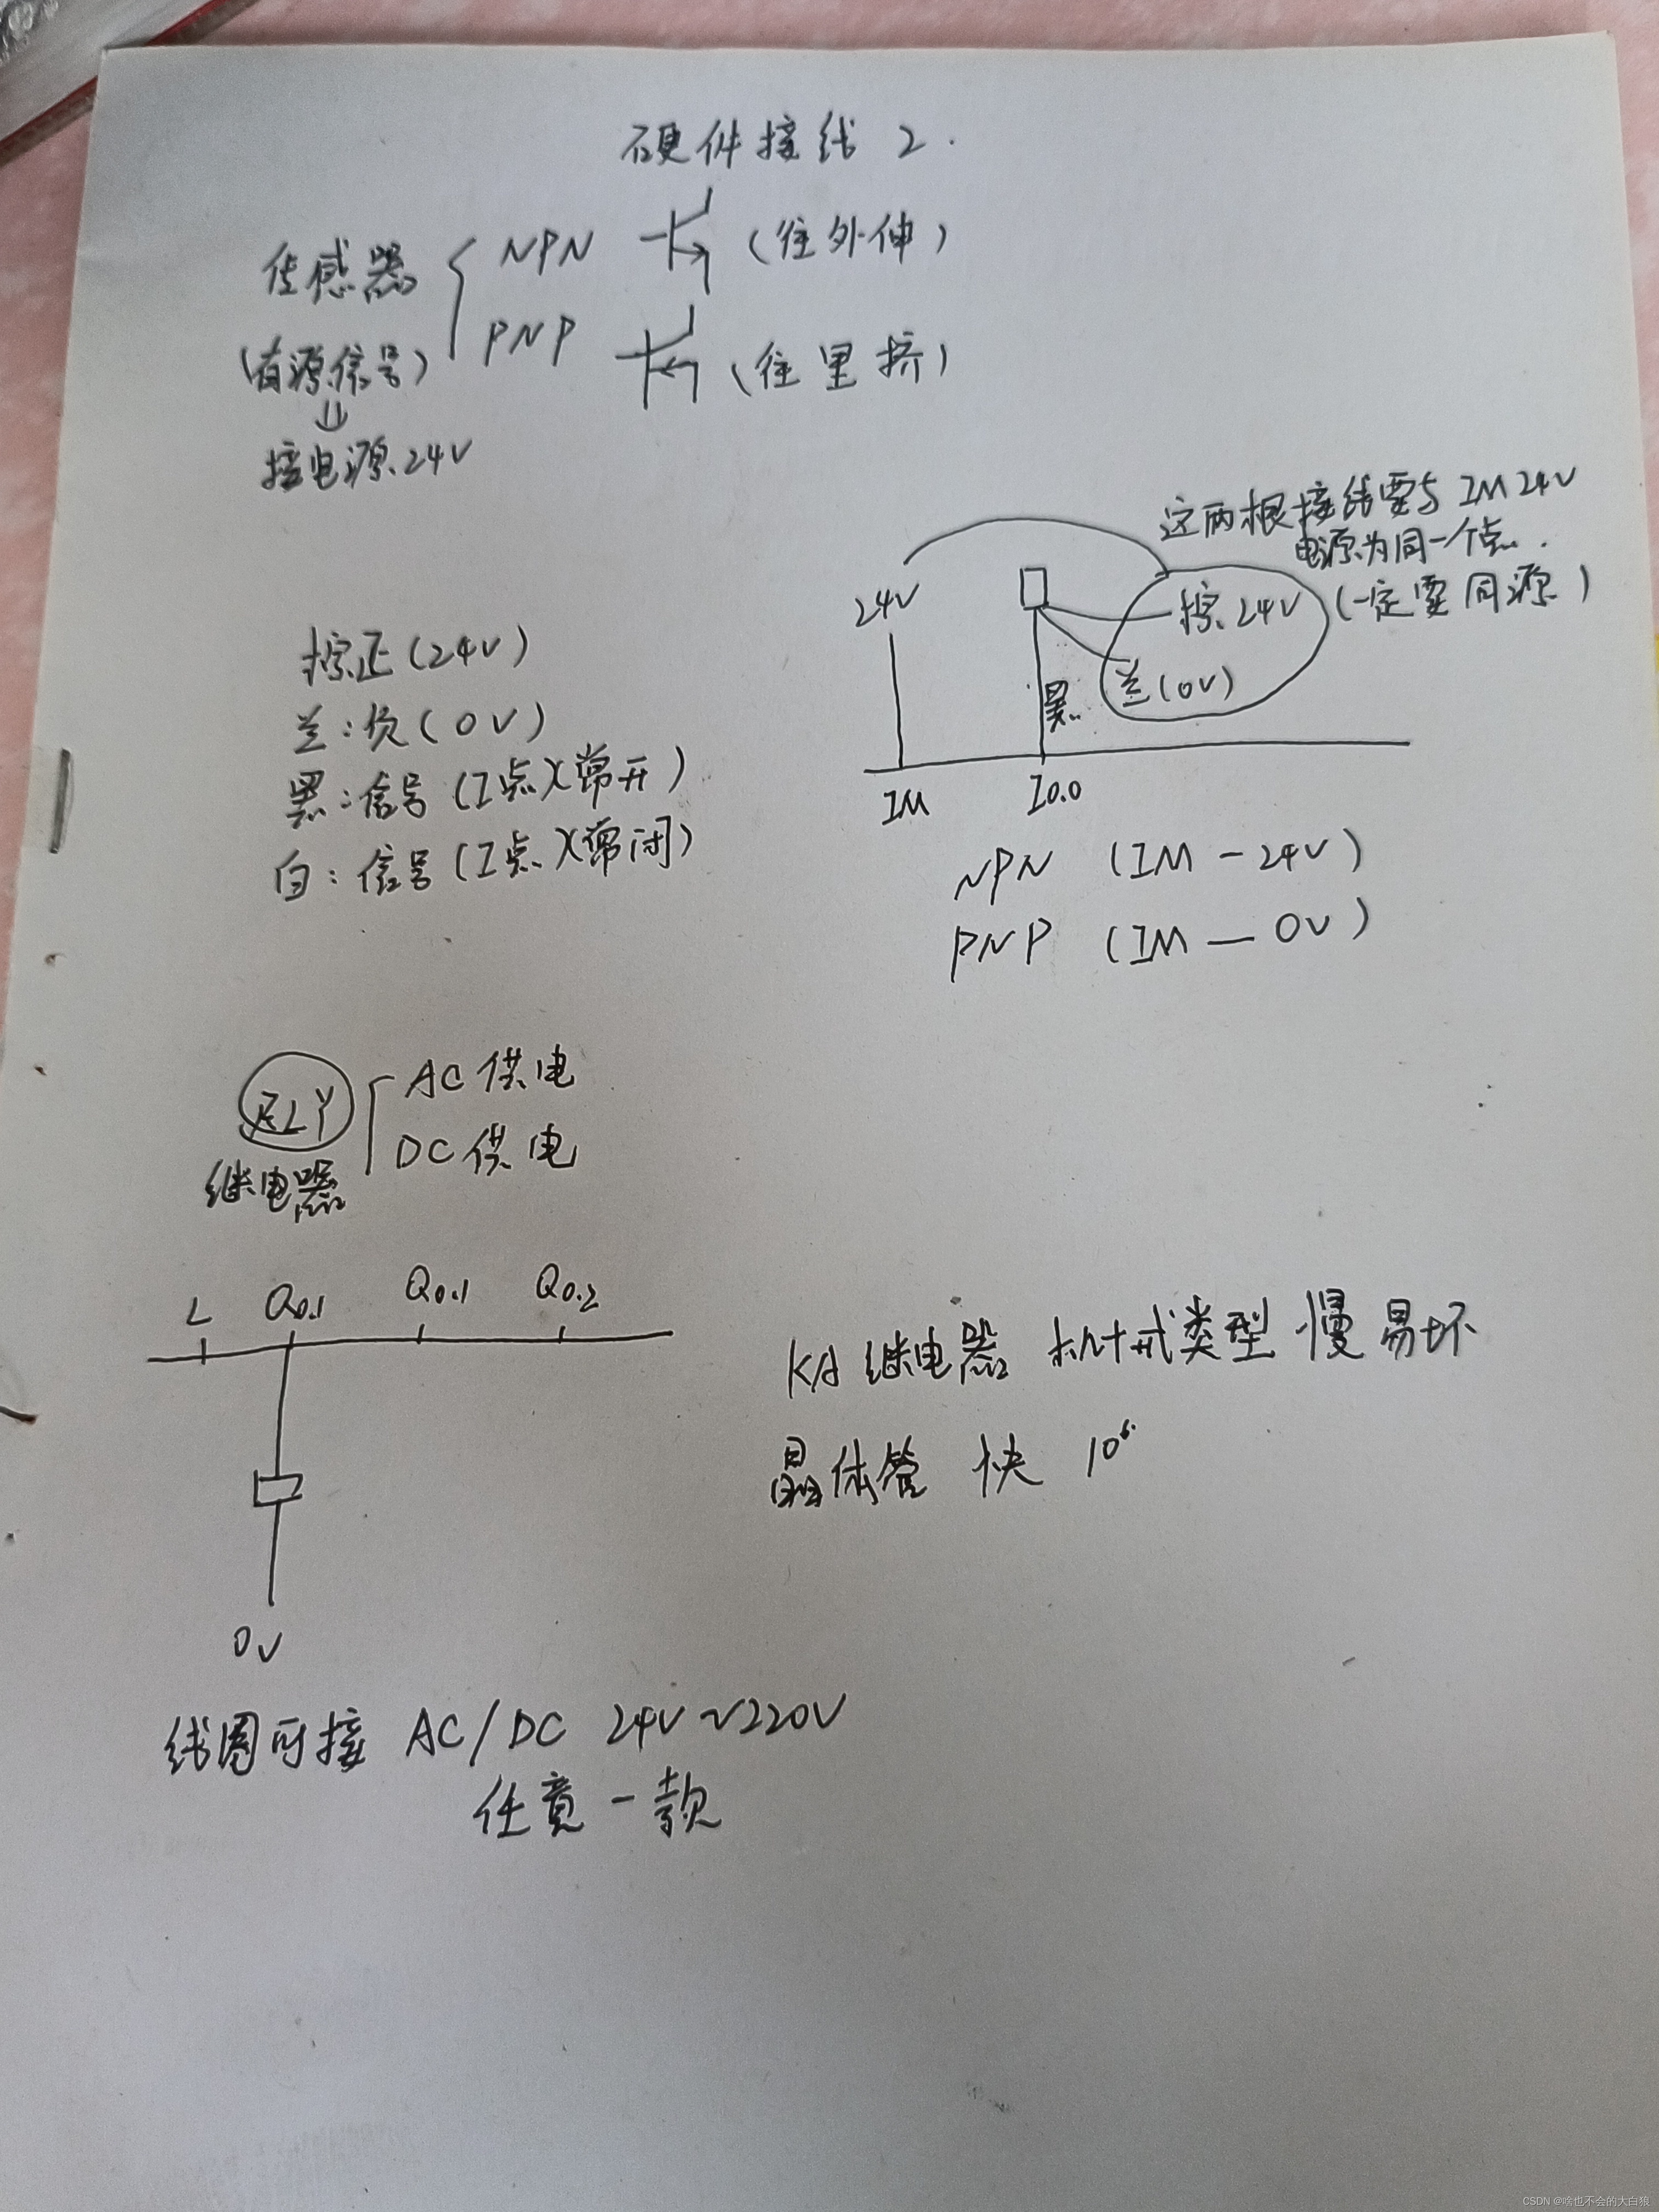 硬件接线 2.
传感器 { NPN (往外伸)
(有源信号) PNP (往里挤)
⇓
接电源 24V
这两根接线要与 IM 24V
电源为同一个点.
(一定要同源)
24V
棕 24V
兰(0V)
黑
IM I0.0
NPN (IM - 24V)
PNP (IM — 0V)
棕正(24V)
兰:负(0V)
黑:信号(I点)(常开)
白:信号(I点)(常闭)
RLY { AC 供电
继电器 DC 供电
L Q0.1 Q0.1 Q0.2
0V
KA 继电器 机械式类型 慢 易坏
晶体管 快 10⁶
线圈可接 AC/DC 24V~220V
任意一款
CSDN @啥也不会的大白狼